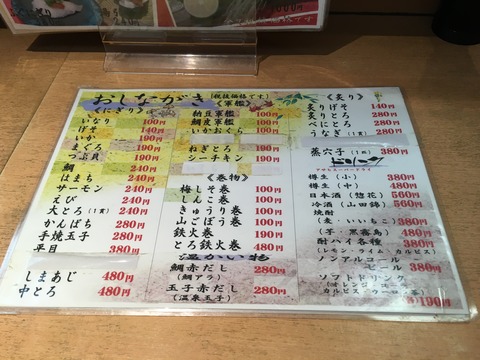 おしながき
(税抜価格です)
<にぎり>
いなり 100円
げそ 140円
いか 190円
まぐろ 190円
つぶ貝 190円
鯛 240円
はまち 240円
サーモン 240円
えび 240円
大とろ(1貫) 240円
かんぱち 280円
手焼玉子 240円
平目 380円
しまあじ 480円
中とろ 480円
<軍艦>
納豆軍艦 100円
鯛皮軍艦 100円
いかおくら 190円
ねぎとろ 190円
シーチキン 190円
<巻物>
梅しそ巻 100円
しんこ巻 100円
きゅうり巻 100円
山ごぼう巻 100円
鉄火巻 190円
とろ鉄火巻 480円
温かい物
鯛赤だし 280円
(鯛アラ)
玉子赤だし 280円
(温泉玉子)
<炙り>
炙りげそ 140円
炙りとろ 280円
べにとろ 280円
うなぎ(1貫) 280円
蒸穴子(1匹) 380円
ドリンク
アサヒスーパードライ
樽生(小) 380円
樽生(中) 480円
日本酒(惣花) 560円
冷酒(山田錦) 560円
焼酎
(麦・いいちこ) 380円
(芋・黒霧島) 380円
酎ハイ各種 380円
(レモン・ライム・カルピス)
ノンアルコール
ビール 380円
ソフトドリンク
(オレンジ・コーラ
カルピス・ウーロン茶)
各190円